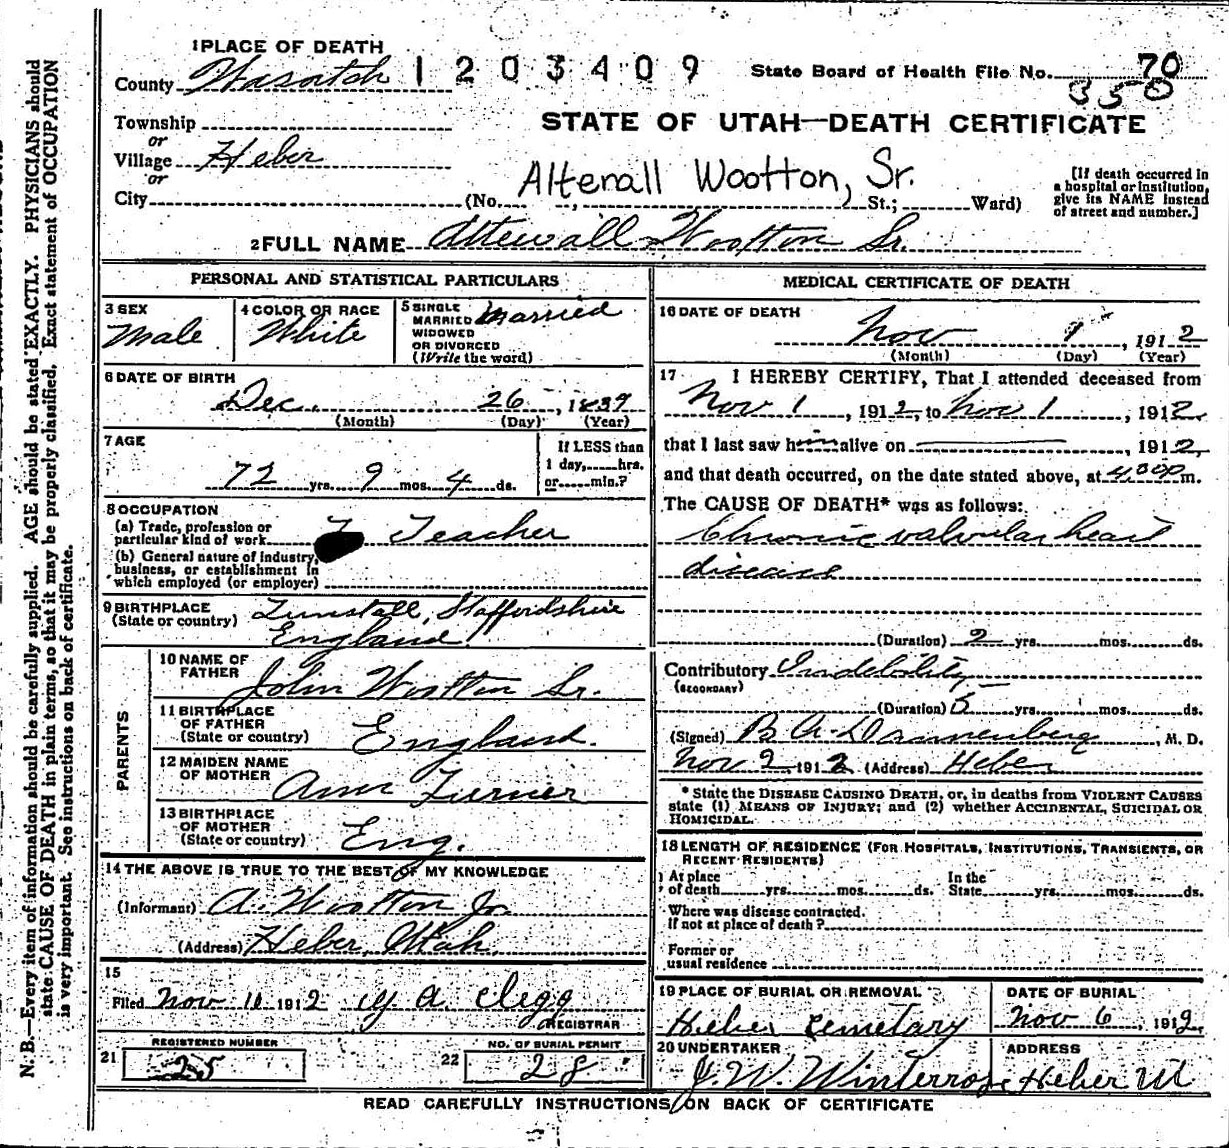 1 PLACE OF DEATH
County Wasatch 1203409 State Board of Health File No. 70
350
Township
or
Village Heber
or
City (No. , St.; Ward)
STATE OF UTAH—DEATH CERTIFICATE
Altenall Wootton, Sr.
[If death occurred in
a hospital or institution,
give its NAME instead
of street and number.]
2 FULL NAME Attewall Wootton Sr.
PERSONAL AND STATISTICAL PARTICULARS
3 SEX
Male
4 COLOR OR RACE
White
5 SINGLE
MARRIED
WIDOWED
OR DIVORCED
(Write the word)
Married
6 DATE OF BIRTH
Dec. 26, 1839
(Month) (Day) (Year)
7 AGE
72 yrs. 9 mos. 4 ds.
If LESS than
1 day, hrs.
or min.?
8 OCCUPATION
(a) Trade, profession or
particular kind of work Teacher
(b) General nature of industry,
business, or establishment in
which employed (or employer)
9 BIRTHPLACE
(State or country) Tunstall, Staffordshire
England
PARENTS
10 NAME OF
FATHER John Wootton Sr.
11 BIRTHPLACE
OF FATHER
(State or country) England.
12 MAIDEN NAME
OF MOTHER Ann Turner
13 BIRTHPLACE
OF MOTHER
(State or country) Eng.
14 THE ABOVE IS TRUE TO THE BEST OF MY KNOWLEDGE
(Informant) A. Wootton Jr.
(Address) Heber, Utah,
15
Filed Nov 1912 A Clegg
REGISTRAR
REGISTERED NUMBER
21 25
NO. OF BURIAL PERMIT
22 28
MEDICAL CERTIFICATE OF DEATH
16 DATE OF DEATH
Nov 1, 1912
(Month) (Day) (Year)
17 I HEREBY CERTIFY, That I attended deceased from
Nov 1, 1912, to Nov 1, 1912,
that I last saw him alive on , 1912,
and that death occurred, on the date stated above, at m.
The CAUSE OF DEATH* was as follows:
Chronic valvular heart
disease
(Duration) 2 yrs. mos. ds.
Contributory
(SECONDARY)
(Duration) 5 yrs. mos. ds.
(Signed) B A Dannenberg, M. D.
Nov 2, 1912 (Address) Heber
* State the DISEASE CAUSING DEATH, or, in deaths from VIOLENT CAUSES
state (1) MEANS OF INJURY; and (2) whether ACCIDENTAL, SUICIDAL OR
HOMICIDAL.
18 LENGTH OF RESIDENCE (FOR HOSPITALS, INSTITUTIONS, TRANSIENTS, OR
RECENT RESIDENTS)
At place
of death yrs. mos. ds. In the
State yrs. mos. ds.
Where was disease contracted.
If not at place of death?
Former or
usual residence
19 PLACE OF BURIAL OR REMOVAL
Heber cemetary
DATE OF BURIAL
Nov 6, 1912
20 UNDERTAKER
J. W. Winterrose
ADDRESS
Heber Ut
READ CAREFULLY INSTRUCTIONS ON BACK OF CERTIFICATE
N. B.—Every item of information should be carefully supplied. AGE should be stated EXACTLY. PHYSICIANS should
state CAUSE OF DEATH in plain terms, so that it may be properly classified. Exact statement of OCCUPATION
is very important. See instructions on back of certificate.